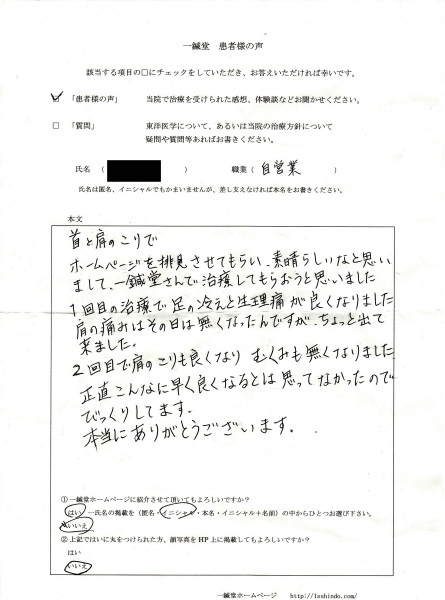 一鍼堂 患者様の声
該当する項目の□にチェックをしていただき、お答えいただければ幸いです。
☑ 「患者様の声」 当院で治療を受けられた感想、体験談などお聞かせください。
□ 「質問」 東洋医学について、あるいは当院の治療方針について
疑問や質問等あればお書きください。
氏名 ( ) 職業 ( 自営業 )
氏名は匿名、イニシャルでもかまいませんが、差し支えなければ本名をお書きください。
本文
首と肩のこりで
ホームページを拝見させてもらい、素晴らしいなと思い
まして、一鍼堂さんで治療してもらおうと思いました
1回目の治療で足の冷えと生理痛が良くなりました
肩の痛みはその日は無くなったんですが、ちょっと出て
来ました.
2回目で肩のこりも良くなり むくみも無くなりました
正直こんなに早く良くなるとは思ってなかったので
びっくりしてます.
本当にありがとうございます.
① 一鍼堂ホームページに紹介させて頂いてもよろしいですか?
はい …氏名の掲載を(匿名・イニシャル・本名・イニシャル+名前)の中からひとつお選び下さい。
いいえ
② 上記ではいに丸をつけられた方、顔写真を HP 上に掲載してもよろしいですか?
はい
いいえ
一鍼堂ホームページ http://1sshindo.com/